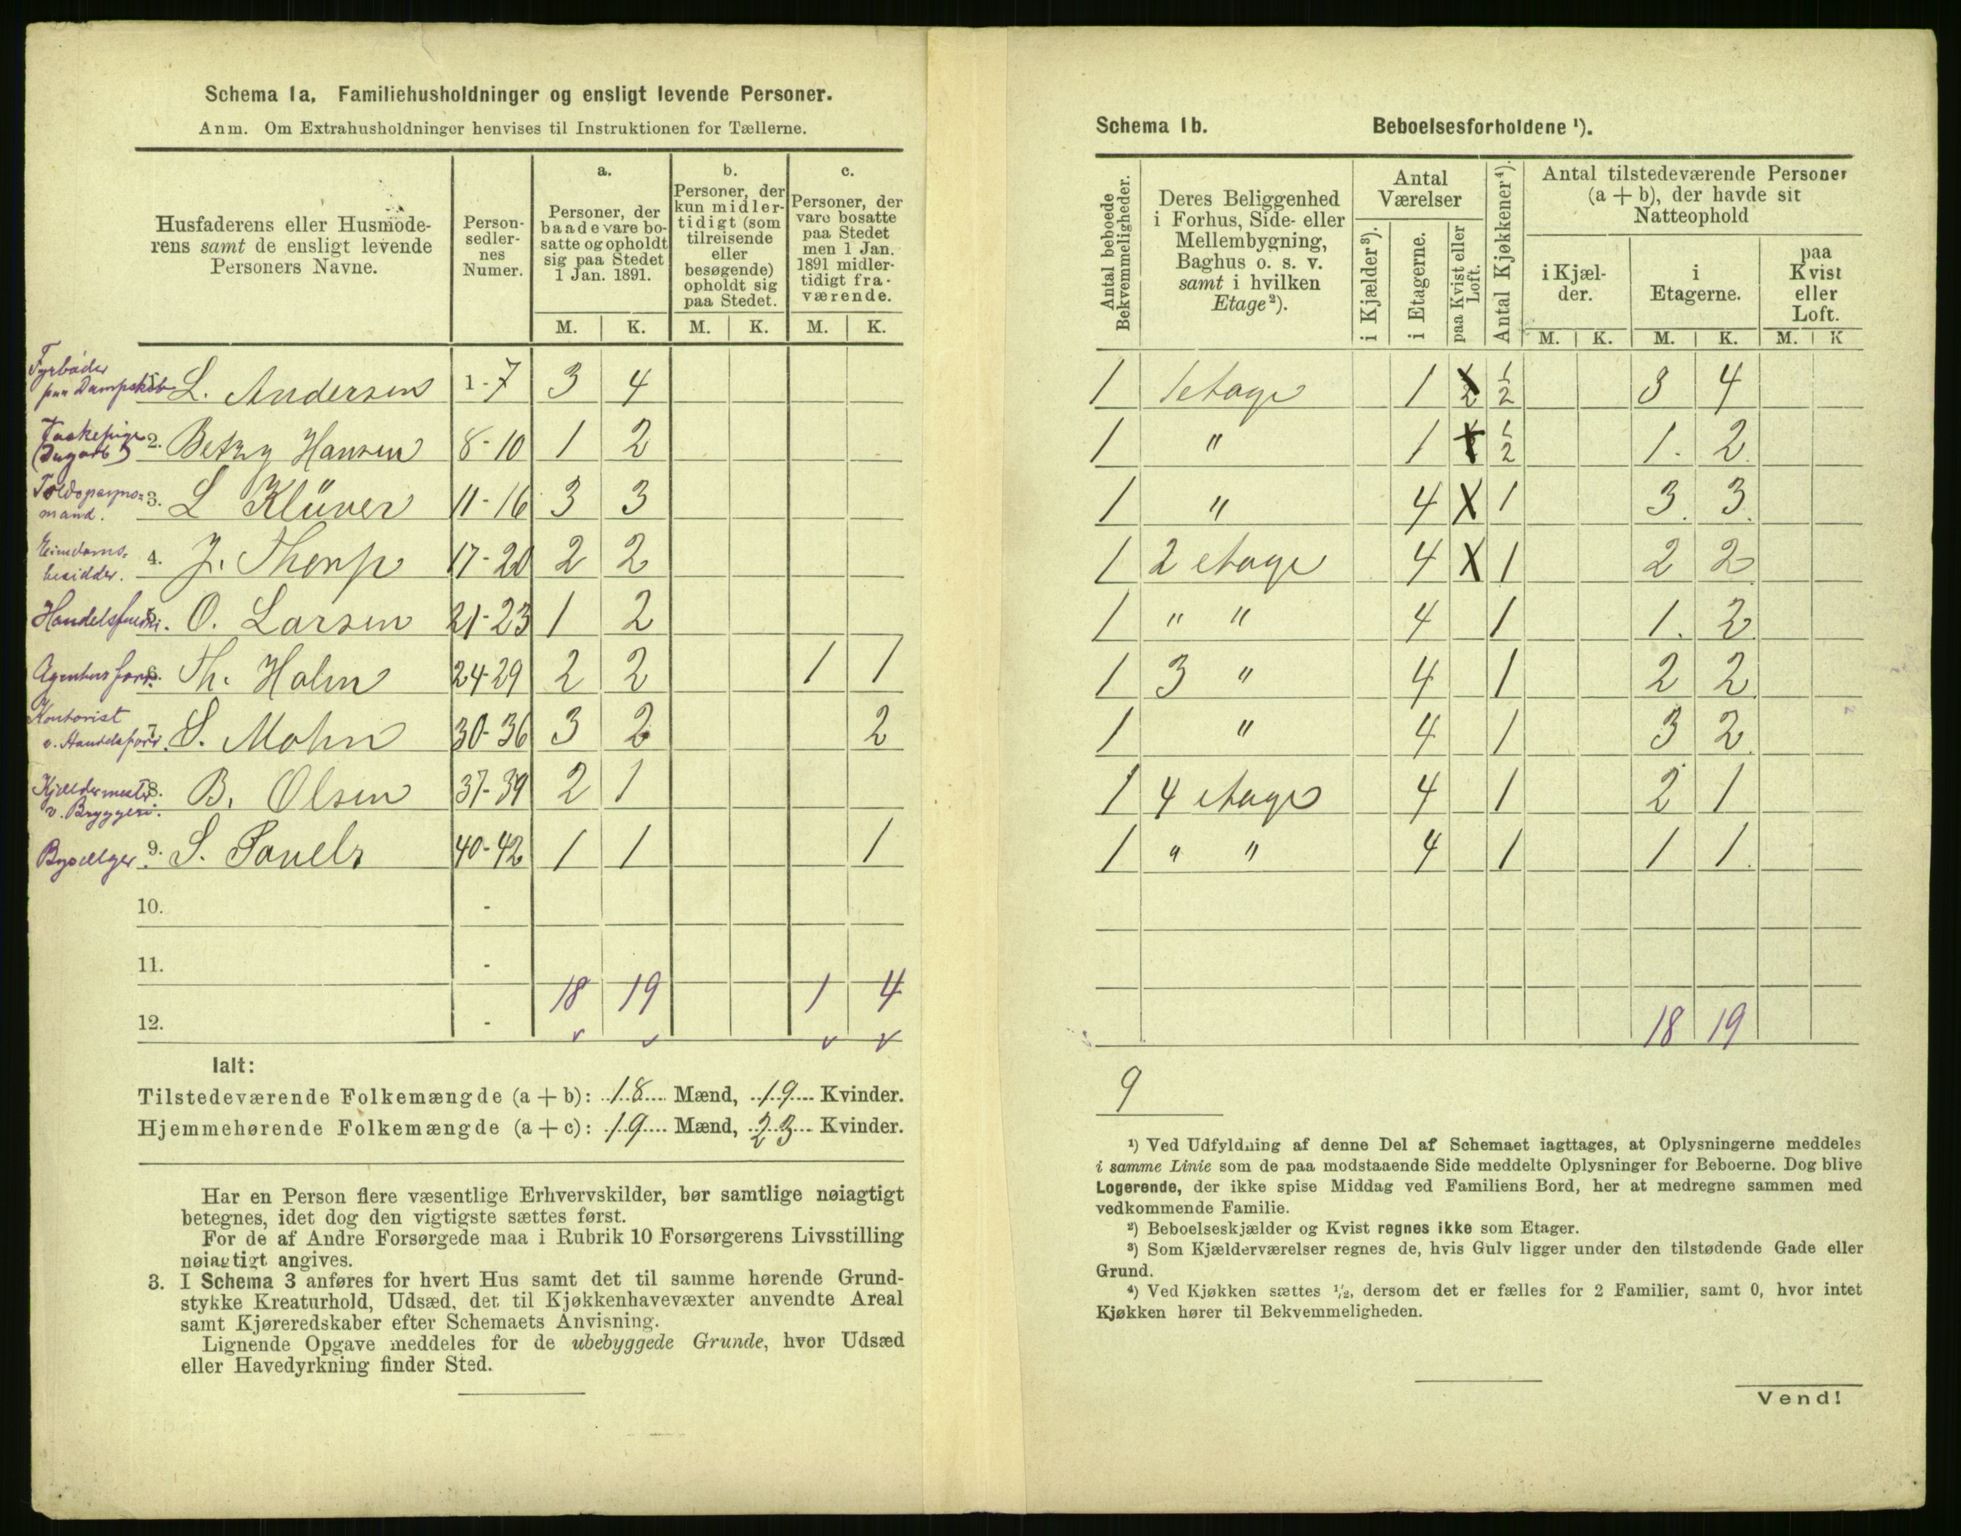 Schema 1a. Familiehusholdninger og ensligt levende Personer.
Anm. Om Extrahusholdninger henvises til Instruktionen for Tællerne.
Husfaderens eller Husmoderens samt de ensligt levende Personers Navne. | Personsedlernes Numer. | a. Personer, der baade vare bosatte og opholdt sig paa Stedet 1 Jan. 1891. | b. Personer, der kun midlertidigt (som tilreisende eller besøgende) opholdt sig paa Stedet. | c. Personer, der vare bosatte paa Stedet men 1 Jan. 1891 midlertidigt fraværende.
M. K. M. K. M. K.
Fyrbøder paa Dampskib L. Andersen 1-7 3 4
2. Betzy Hansen 8-10 1 2
mand. 3. L Klüver 11-16 3 3
4. J. Thorp 17-20 2 2
O. Larsen 21-23 1 2
6. Th. Holm 24-29 2 2 1 1
Kontorist v. Handelsforr. 7. S. Mohn 30-36 3 2 2
Kjeldermester v. Bryggeri. 8. B. Olsen 37-39 2 1
Bysælger. 9. S. Pauels 40-42 1 1 1
10. -
11. -
12. - 18 19 1 4
Ialt:
Tilstedeværende Folkemængde (a + b): 18 Mænd, 19 Kvinder.
Hjemmehørende Folkemængde (a + c): 19 Mænd, 23 Kvinder.
Har en Person flere væsentlige Erhvervskilder, bør samtlige nøiagtigt
betegnes, idet dog den vigtigste sættes først.
For de af Andre Forsørgede maa i Rubrik 10 Forsørgerens Livsstilling
nøiagtigt angives.
3. I Schema 3 anføres for hvert Hus samt det til samme hørende Grund-
stykke Kreaturhold, Udsæd, det til Kjøkkenhavevæxter anvendte Areal
samt Kjøreredskaber efter Schemaets Anvisning.
Lignende Opgave meddeles for de ubebyggede Grunde, hvor Udsæd
eller Havedyrkning finder Sted.
Schema 1b. Beboelsesforholdene ¹).
Antal beboede Bekvemmeligheder. | Deres Beliggenhed i Forhus, Side- eller Mellembygning, Baghus o. s. v. samt i hvilken Etage²). | Antal Værelser | i Kjælder³). | i Etagerne. | paa Kvist eller Loft. | Antal Kjøkkener⁴). | Antal tilstedeværende Personer (a + b), der havde sit Natteophold | i Kjælder. | i Etagerne. | paa Kvist eller Loft.
M. K. M. K. M. K
1 1 etage 1 1/2 3 4
1 " 1 1/2 1. 2
1 " 4 X 1 3. 3
1 2 etage 4 X 1 2 2
1 " " 4 1 1. 2
1 3 " 4 1 2 2
1 " 4 1 3 2
1 4 etage 4 1 2 1
1 " " 4 1 1 1
18 19
9
¹) Ved Udfyldning af denne Del af Schemaet iagttages, at Oplysningerne meddeles
i samme Linie som de paa modstaaende Side meddelte Oplysninger for Beboerne. Dog blive
Logerende, der ikke spise Middag ved Familiens Bord, her at medregne sammen med
vedkommende Familie.
²) Beboelseskjælder og Kvist regnes ikke som Etager.
³) Som Kjælderværelser regnes de, hvis Gulv ligger under den tilstødende Gade eller
Grund.
⁴) Ved Kjøkken sættes ½, dersom det er fælles for 2 Familier, samt 0, hvor intet
Kjøkken hører til Bekvemmeligheden.
Vend!